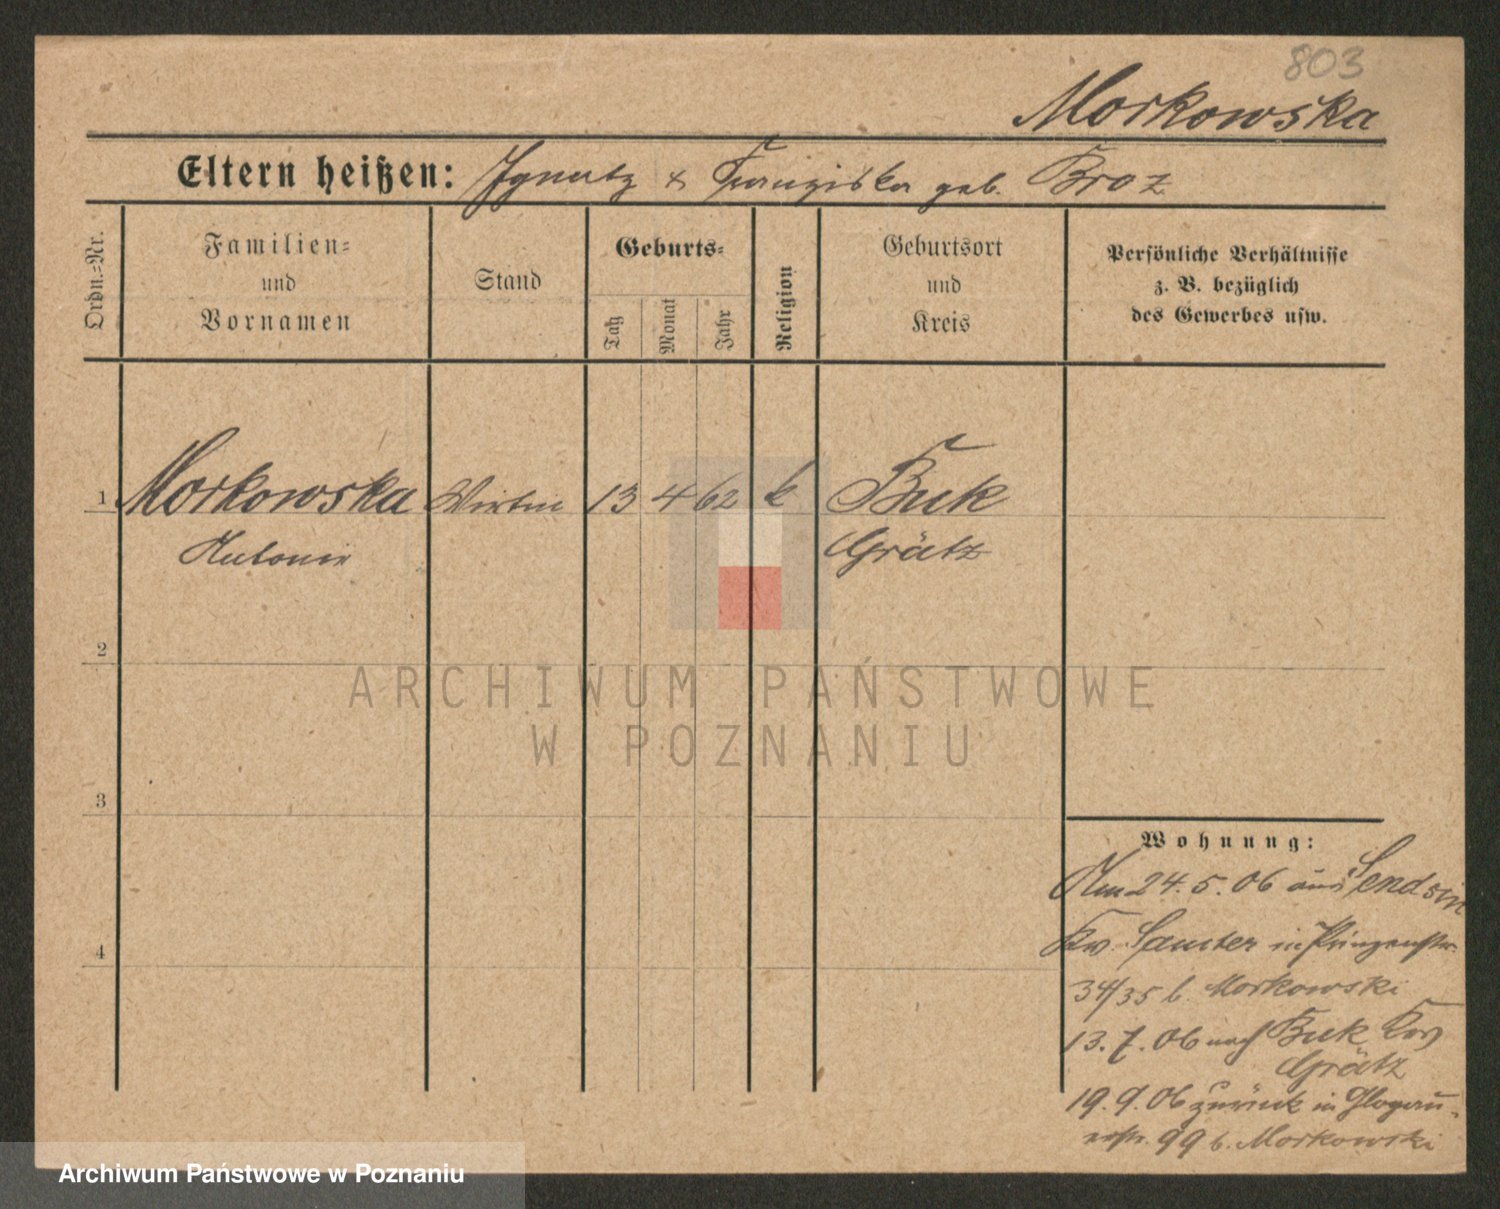 803
Morkowska
Eltern heißen: Ignatz & Franziska geb. Broz
Ordn.-Nr.
Familien-
und
Vornamen
Stand
Geburts-
Tag
Monat
Jahr
Religion
Geburtsort
und
Kreis
Persönliche Verhältnisse
z. B. bezüglich
des Gewerbes usw.
1 Morkowska Wirtin 13 4 62 k Buk
Antonie Grätz
2
ARCHIWUM PAŃSTWOWE
W POZNANIU
3
Wohnung:
Am 24.5.06 aus Sendzin
4
Kr. Samter in Prinzenstr.
34/35 b. Morkowski
13.7.06 nach Buk Kr
Grätz
19.9.06 zurück in Glogau-
erstr. 99 b. Morkowski
Archiwum Państwowe w Poznaniu